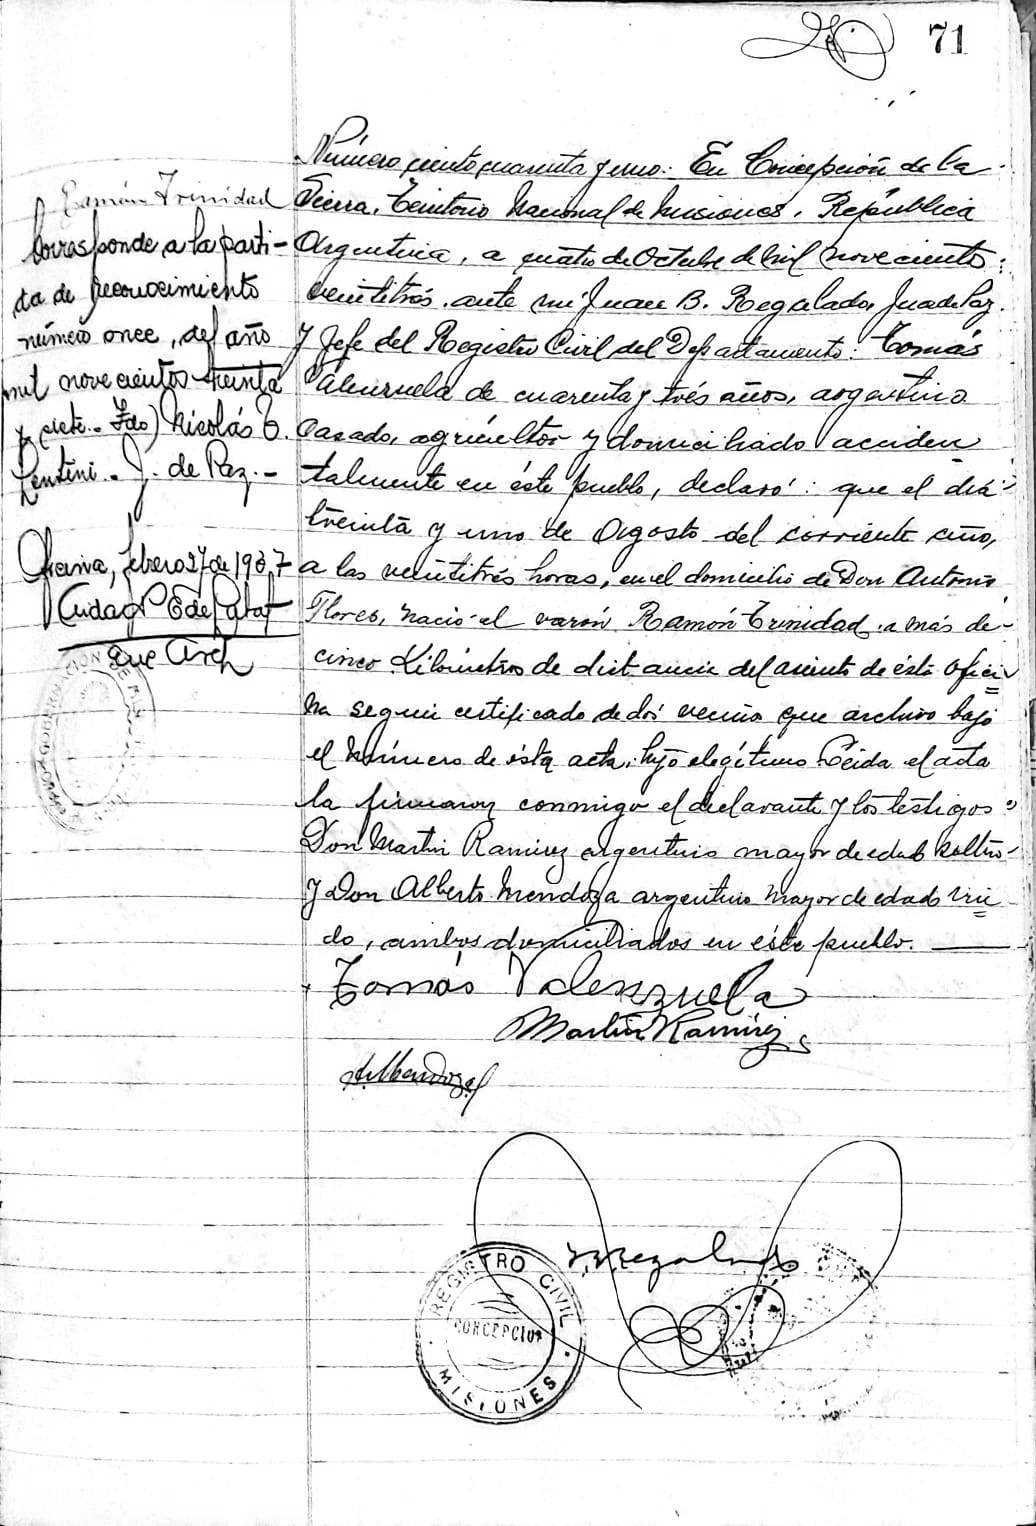 71
Número ciento cuarenta y uno: En Concepción de la
Sierra, Territorio Nacional de Misiones, República
Argentina, a cuatro de Octubre de mil novecientos
veintitrés, ante mi Juan B. Regalado, Juez de Paz
y Jefe del Registro Civil del Departamento: Tomás
Valenzuela de cuarenta y trés años, argentino
casado, agricultor y domiciliado acciden
talmente en éste pueblo, declaró: que el diá
treinta y uno de Agosto del corriente año,
a las veintitrés horas, en el domicilio de Don Antonio
Flores, nació el varón Ramón Trinidad a más de
cinco Kilómetros de distancia del asiento de ésta ofici
na segun certificado de dos vecinos que archivo bajo
el número de ésta acta, hijo elegítimo Leida el acta
la firmaron conmigo el declarante y los testigos
Don Martin Ramirez argentino mayor de edad soltero
y Don Alberto Mendoza argentino mayor de edad viu
do, ambos domiciliados en éste pueblo.
Tomás Valenzuela
Martin Ramirez
A. Mendoza
Ramón Trinidad
Corresponde a la parti-
da de reconocimiento
número once, del año
mil novecientos treinta
y siete.- Fdo) Nicolás C.
Lentini.- J. de Paz.-
Oficina, febrero 27 de 1937
REGISTRO CIVIL
CONCEPCION
MISIONES